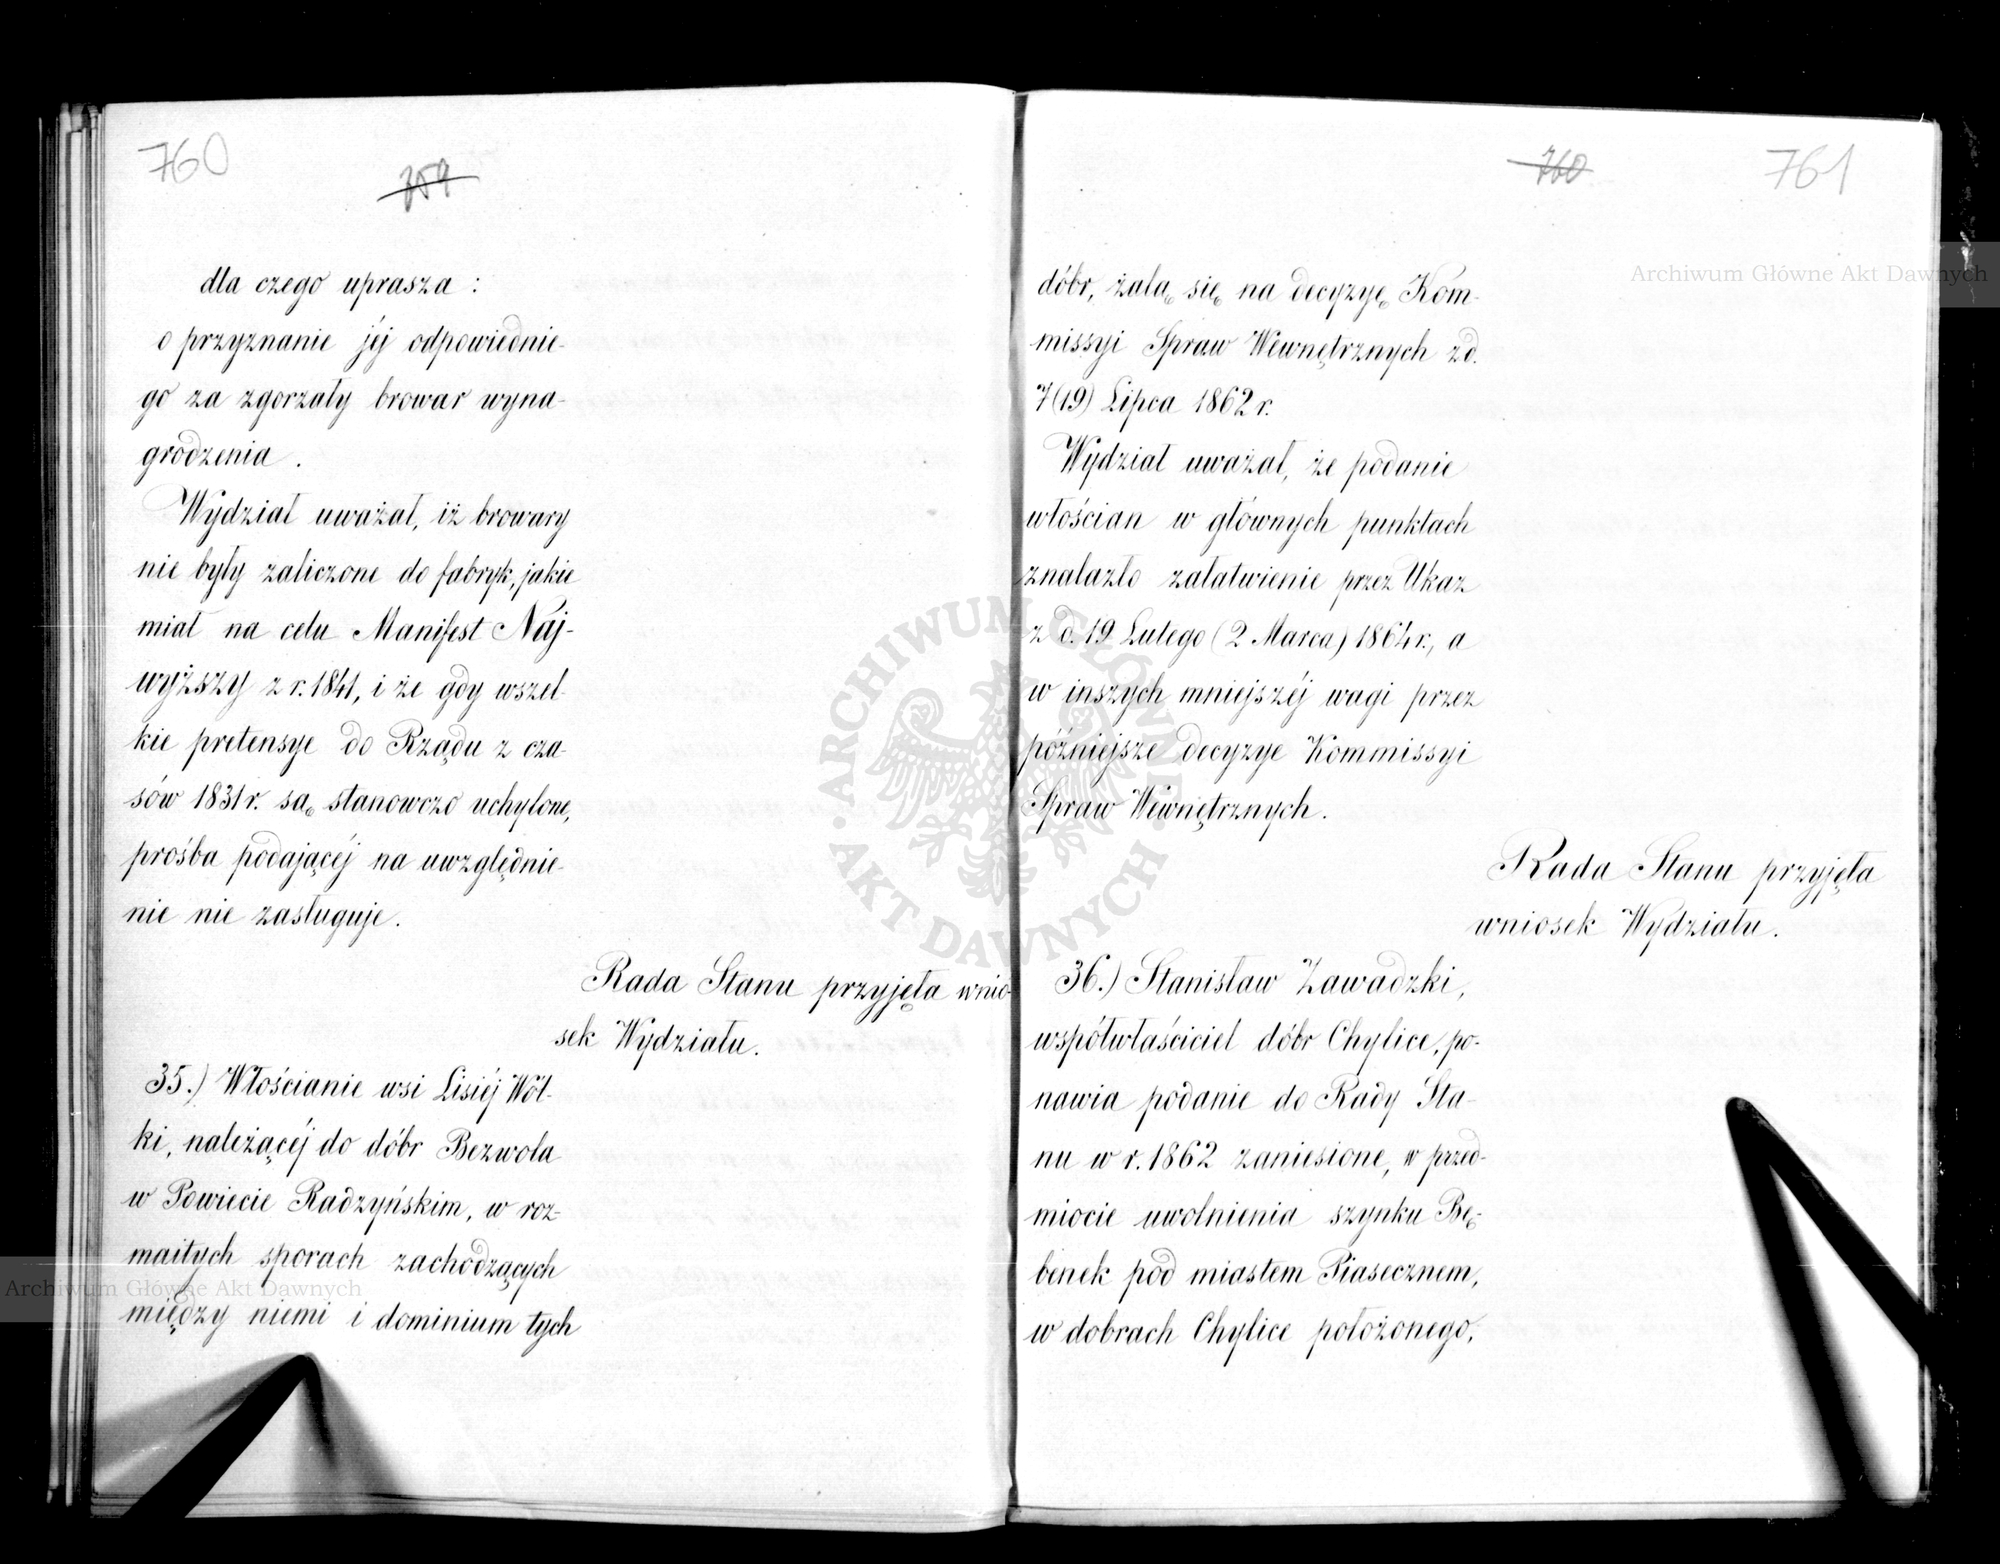 760
759
dla czego uprasza :
o przyznanie jéj odpowiednie-
go za zgorzały browar wyna-
grodzenia .
Wydział uważał, iż browary
nie były zaliczone do fabryk, jakie
miał na celu Manifest Naj-
wyższy z r. 1841, i że gdy wszel-
kie pretensye do Rządu z cza-
sów 1831 r. są stanowczo uchylone,
prośba podającéj na uwzględnie-
nie nie zasługuje.
Rada Stanu przyjęła wnio-
sek Wydziału.
35.) Włościanie wsi Lisiéj Wól-
ki, należącéj do dóbr Bezwola
w Powiecie Radzyńskim, w roz-
maitych sporach zachodzących
między niemi i dominium tych
760
761
dóbr, żalą się na decyzyę Kom-
missyi Spraw Wewnętrznych z d.
7 (19) Lipca 1862 r.
Wydział uważał, że podanie
włościan w głównych punktach
znalazło załatwienie przez Ukaz
z d. 19 Lutego (2 Marca) 1864 r., a
w inszych mniejszéj wagi przez
późniejsze decyzye Kommissyi
Spraw Wewnętrznych.
Rada Stanu przyjęła
wniosek Wydziału.
36.) Stanisław Zawadzki,
współwłaściciel dóbr Chylice, po-
nawia podanie do Rady Sta-
nu w r. 1862 zaniesione, w przed-
miocie uwolnienia szynku Bę-
benek pod miastem Piasecznem,
w dobrach Chylice położonego,
Archiwum Główne Akt Dawnych
Archiwum Główne Akt Dawnych
ARCHIWUM GŁÓWNE AKT DAWNYCH